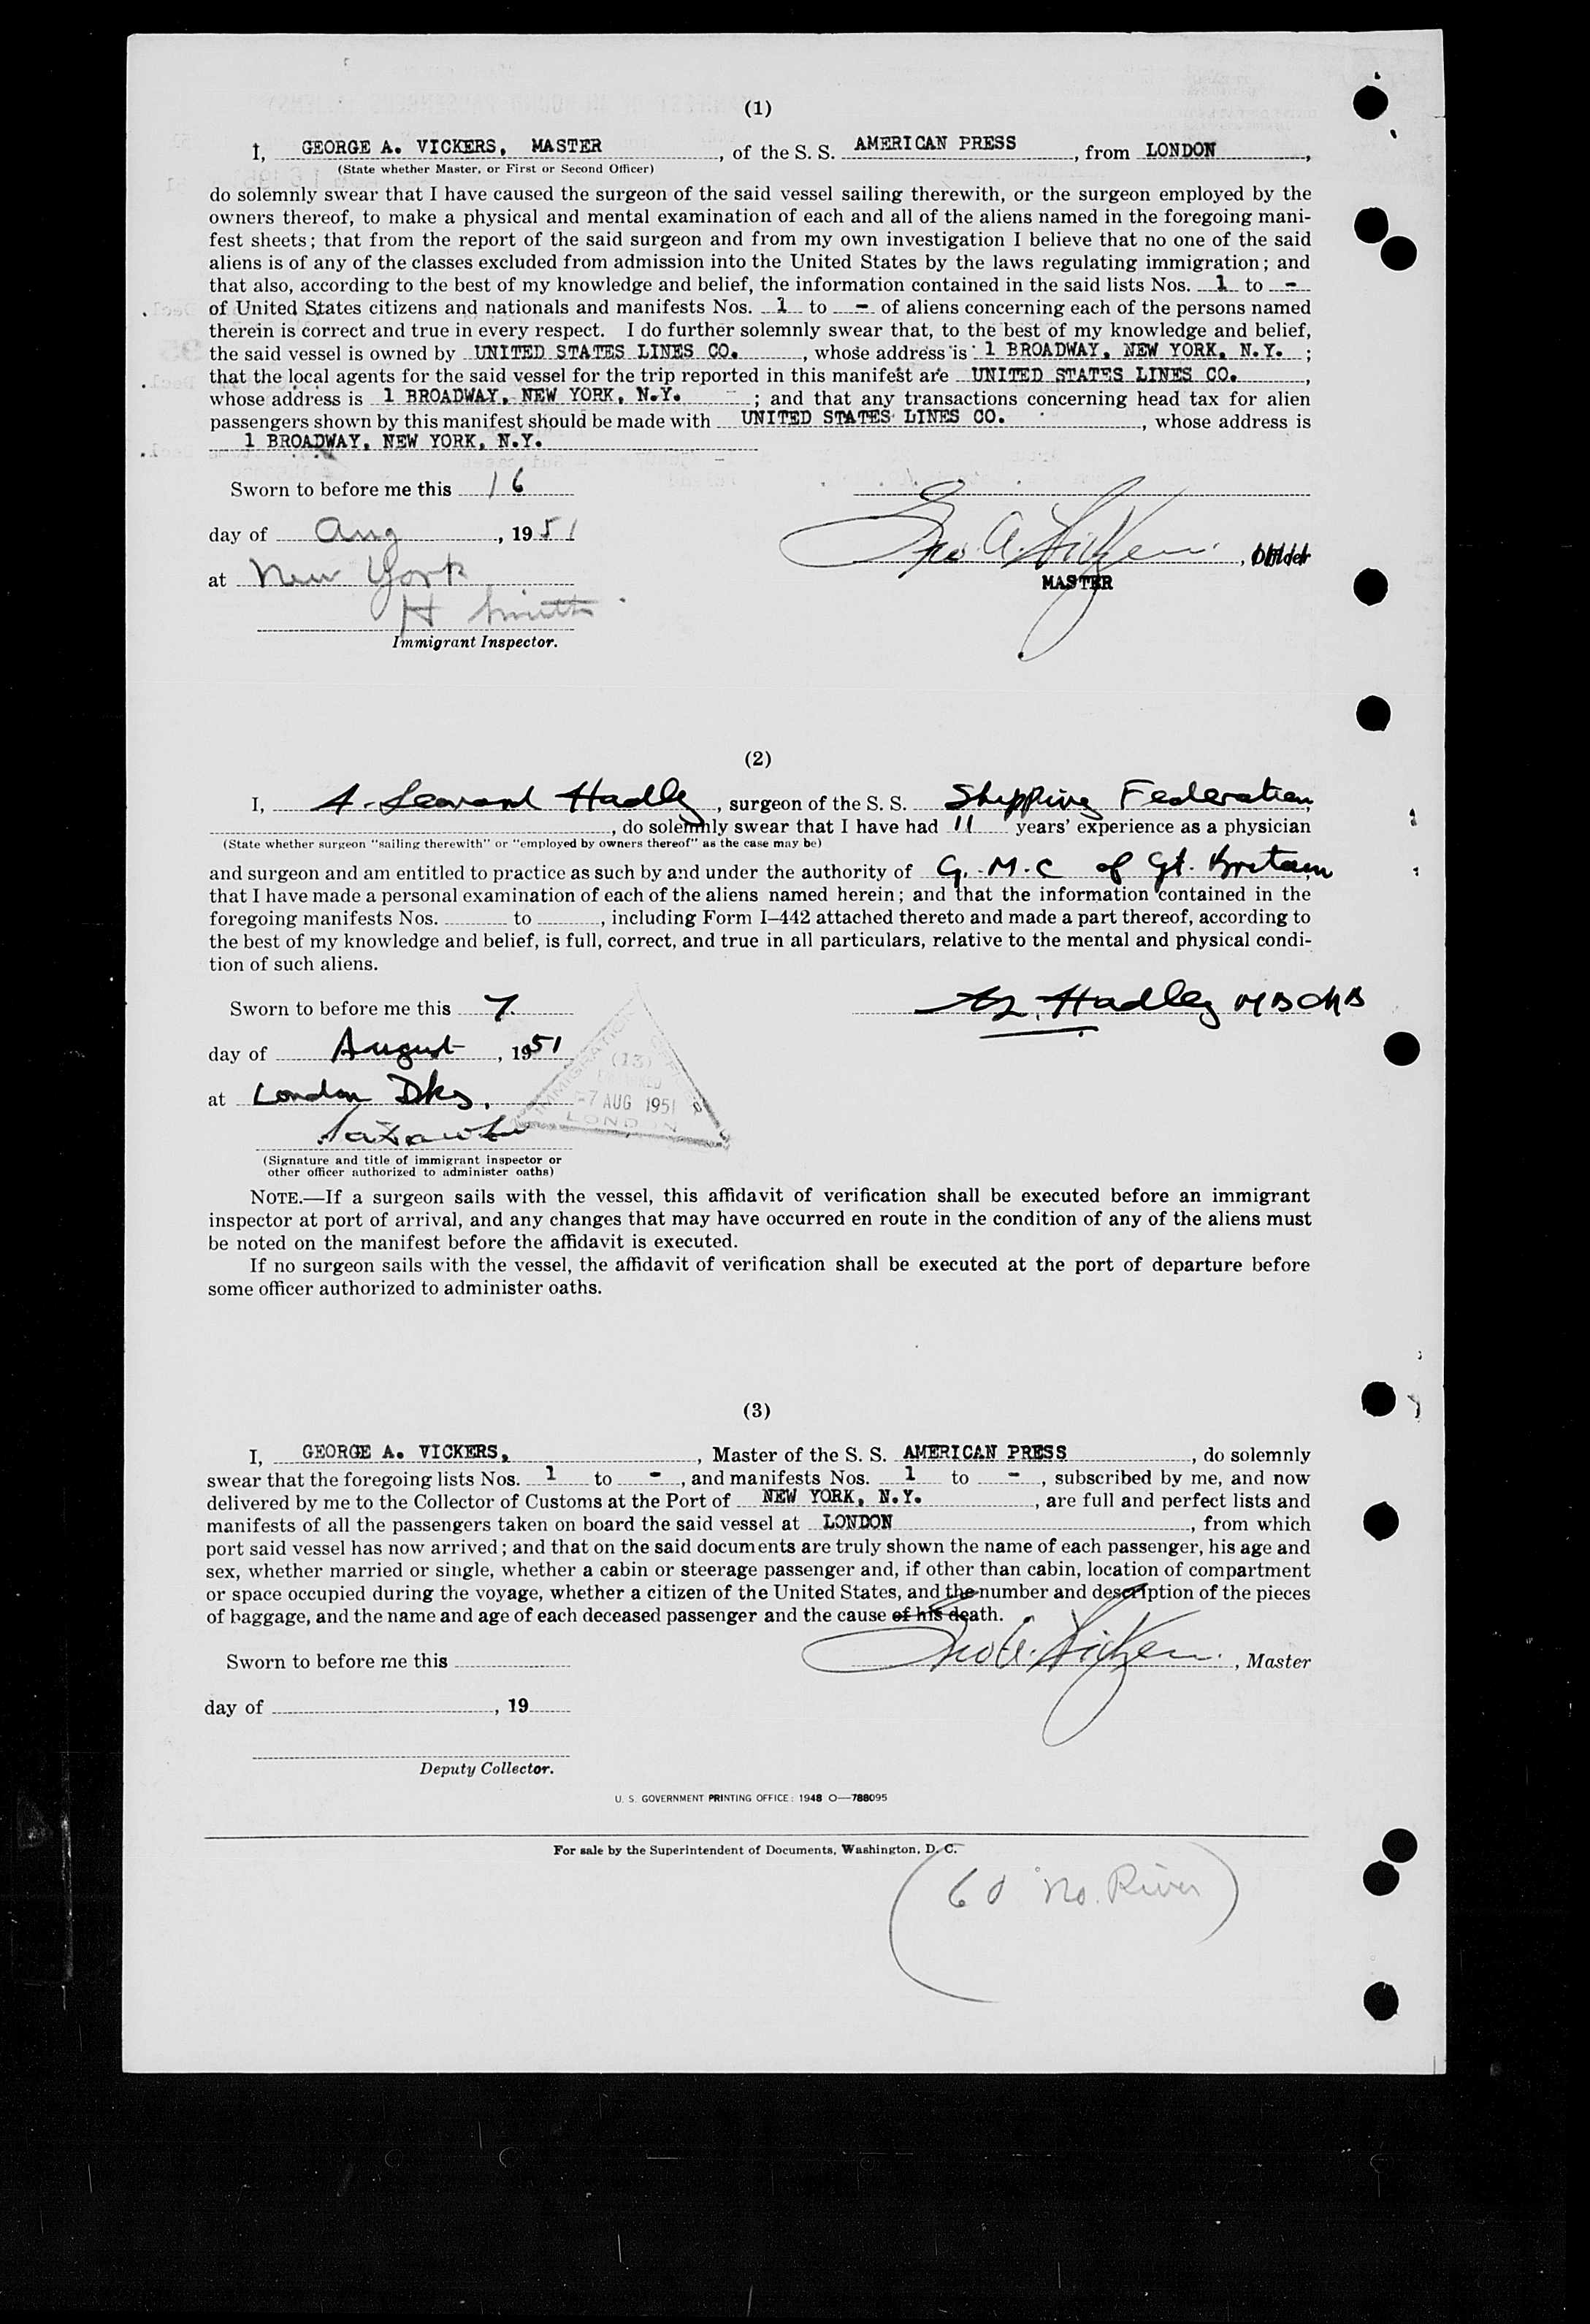 (1)
I, GEORGE A. VICKERS, MASTER, of the S. S. AMERICAN PRESS, from LONDON,
(State whether Master, or First or Second Officer)
do solemnly swear that I have caused the surgeon of the said vessel sailing therewith, or the surgeon employed by the
owners thereof, to make a physical and mental examination of each and all of the aliens named in the foregoing mani-
fest sheets; that from the report of the said surgeon and from my own investigation I believe that no one of the said
aliens is of any of the classes excluded from admission into the United States by the laws regulating immigration; and
that also, according to the best of my knowledge and belief, the information contained in the said lists Nos. 1 to -
of United States citizens and nationals and manifests Nos. 1 to - of aliens concerning each of the persons named
therein is correct and true in every respect. I do further solemnly swear that, to the best of my knowledge and belief,
the said vessel is owned by UNITED STATES LINES CO., whose address is 1 BROADWAY, NEW YORK, N.Y. ;
that the local agents for the said vessel for the trip reported in this manifest are UNITED STATES LINES CO.,
whose address is 1 BROADWAY, NEW YORK, N.Y. ; and that any transactions concerning head tax for alien
passengers shown by this manifest should be made with UNITED STATES LINES CO., whose address is
1 BROADWAY, NEW YORK, N.Y.
Sworn to before me this 16
day of Aug, 1951
Geo. A. Vickers,
at New York
MASTER
H Smith
Immigrant Inspector.
(2)
I, A. Leonard Hadley, surgeon of the S. S. Shipping Federation,
, do solemnly swear that I have had 11 years' experience as a physician
(State whether surgeon "sailing therewith" or "employed by owners thereof" as the case may be)
and surgeon and am entitled to practice as such by and under the authority of G. M. C of Gt. Britain
that I have made a personal examination of each of the aliens named herein; and that the information contained in the
foregoing manifests Nos. to , including Form I–442 attached thereto and made a part thereof, according to
the best of my knowledge and belief, is full, correct, and true in all particulars, relative to the mental and physical condi-
tion of such aliens.
Sworn to before me this 7.
AL. Hadley MB ChB
day of August, 1951
IMMIGRATION OFFICER
(13)
-7 AUG 1951
LONDON
at London Dks,
(Signature and title of immigrant inspector or
other officer authorized to administer oaths)
NOTE.—If a surgeon sails with the vessel, this affidavit of verification shall be executed before an immigrant
inspector at port of arrival, and any changes that may have occurred en route in the condition of any of the aliens must
be noted on the manifest before the affidavit is executed.
If no surgeon sails with the vessel, the affidavit of verification shall be executed at the port of departure before
some officer authorized to administer oaths.
(3)
I, GEORGE A. VICKERS, , Master of the S. S. AMERICAN PRESS, do solemnly
swear that the foregoing lists Nos. 1 to -, and manifests Nos. 1 to -, subscribed by me, and now
delivered by me to the Collector of Customs at the Port of NEW YORK, N.Y., are full and perfect lists and
manifests of all the passengers taken on board the said vessel at LONDON, from which
port said vessel has now arrived; and that on the said documents are truly shown the name of each passenger, his age and
sex, whether married or single, whether a cabin or steerage passenger and, if other than cabin, location of compartment
or space occupied during the voyage, whether a citizen of the United States, and the number and description of the pieces
of baggage, and the name and age of each deceased passenger and the cause of his death.
Geo A. Vickers, Master
Sworn to before me this
day of , 19
Deputy Collector.
U. S. GOVERNMENT PRINTING OFFICE: 1948 O—788095
For sale by the Superintendent of Documents, Washington, D. C.
(60 No. River)